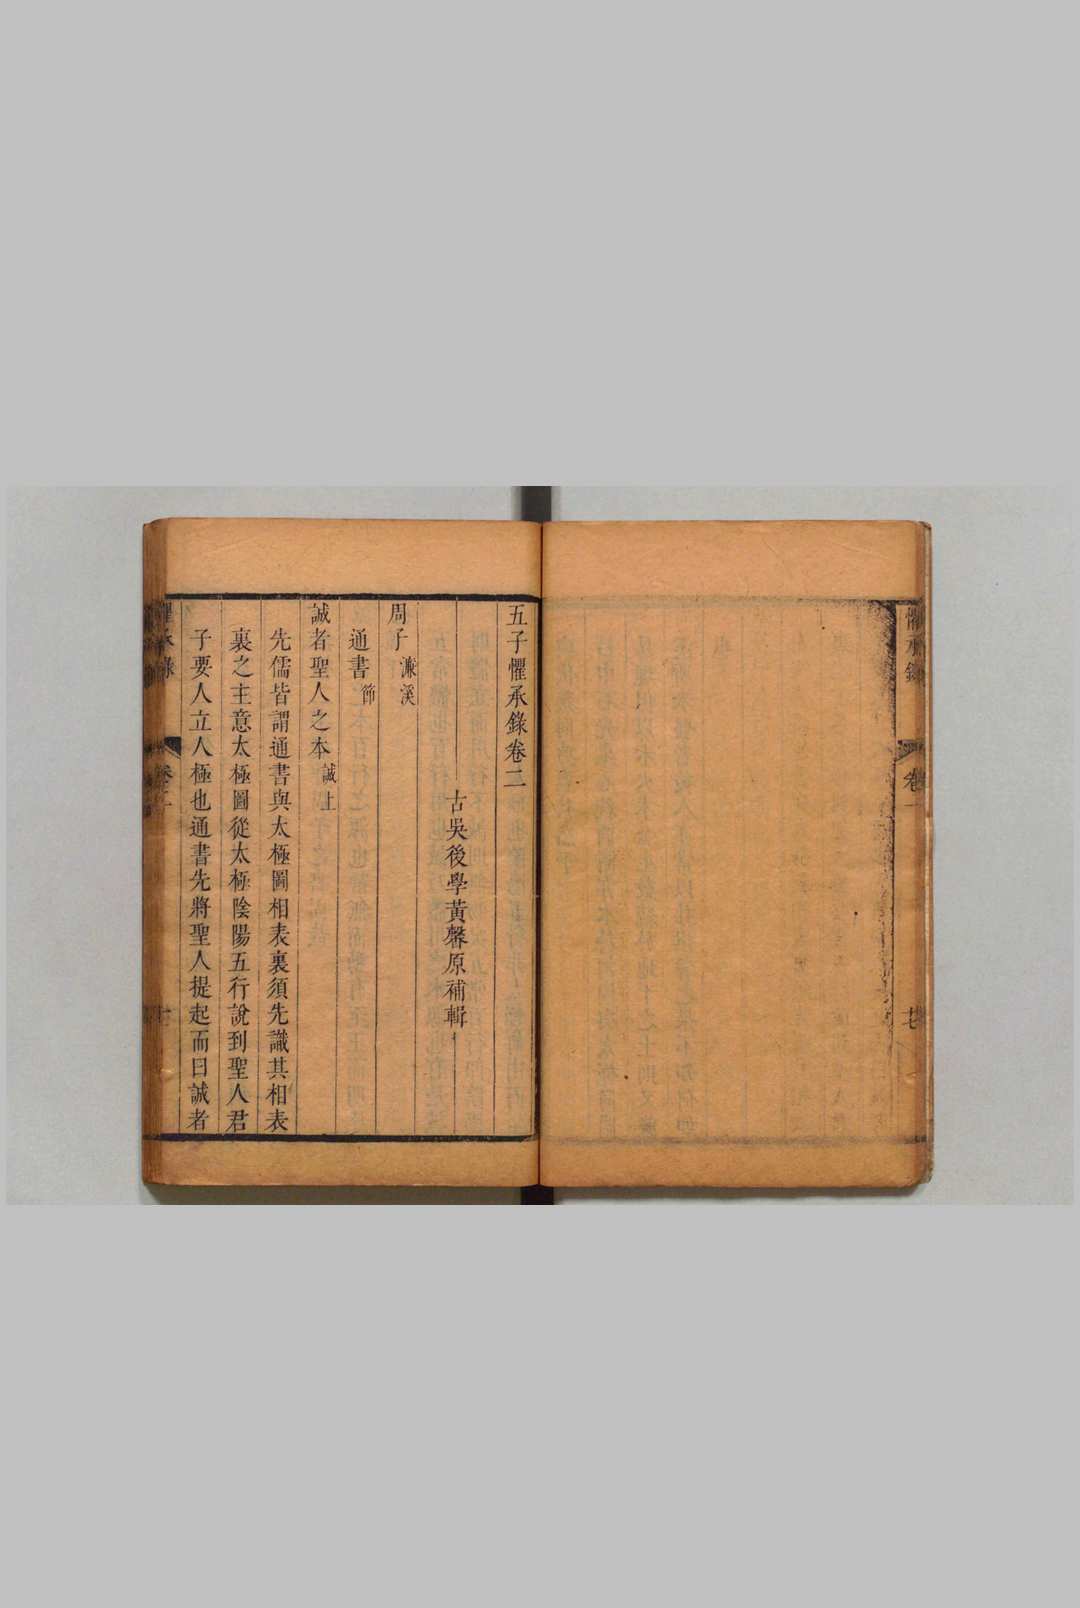 懼承錄
卷一
五子懼承錄卷二
古吳後學黃馨原補輯
周子濂溪
通書節
誠者聖人之本誠上
先儒皆謂通書與太極圖相表裏須先識其相表
裏之主意太極圖從太極陰陽五行說到聖人君
子要人立人極也通書先將聖人提起而曰誠者
懼承錄